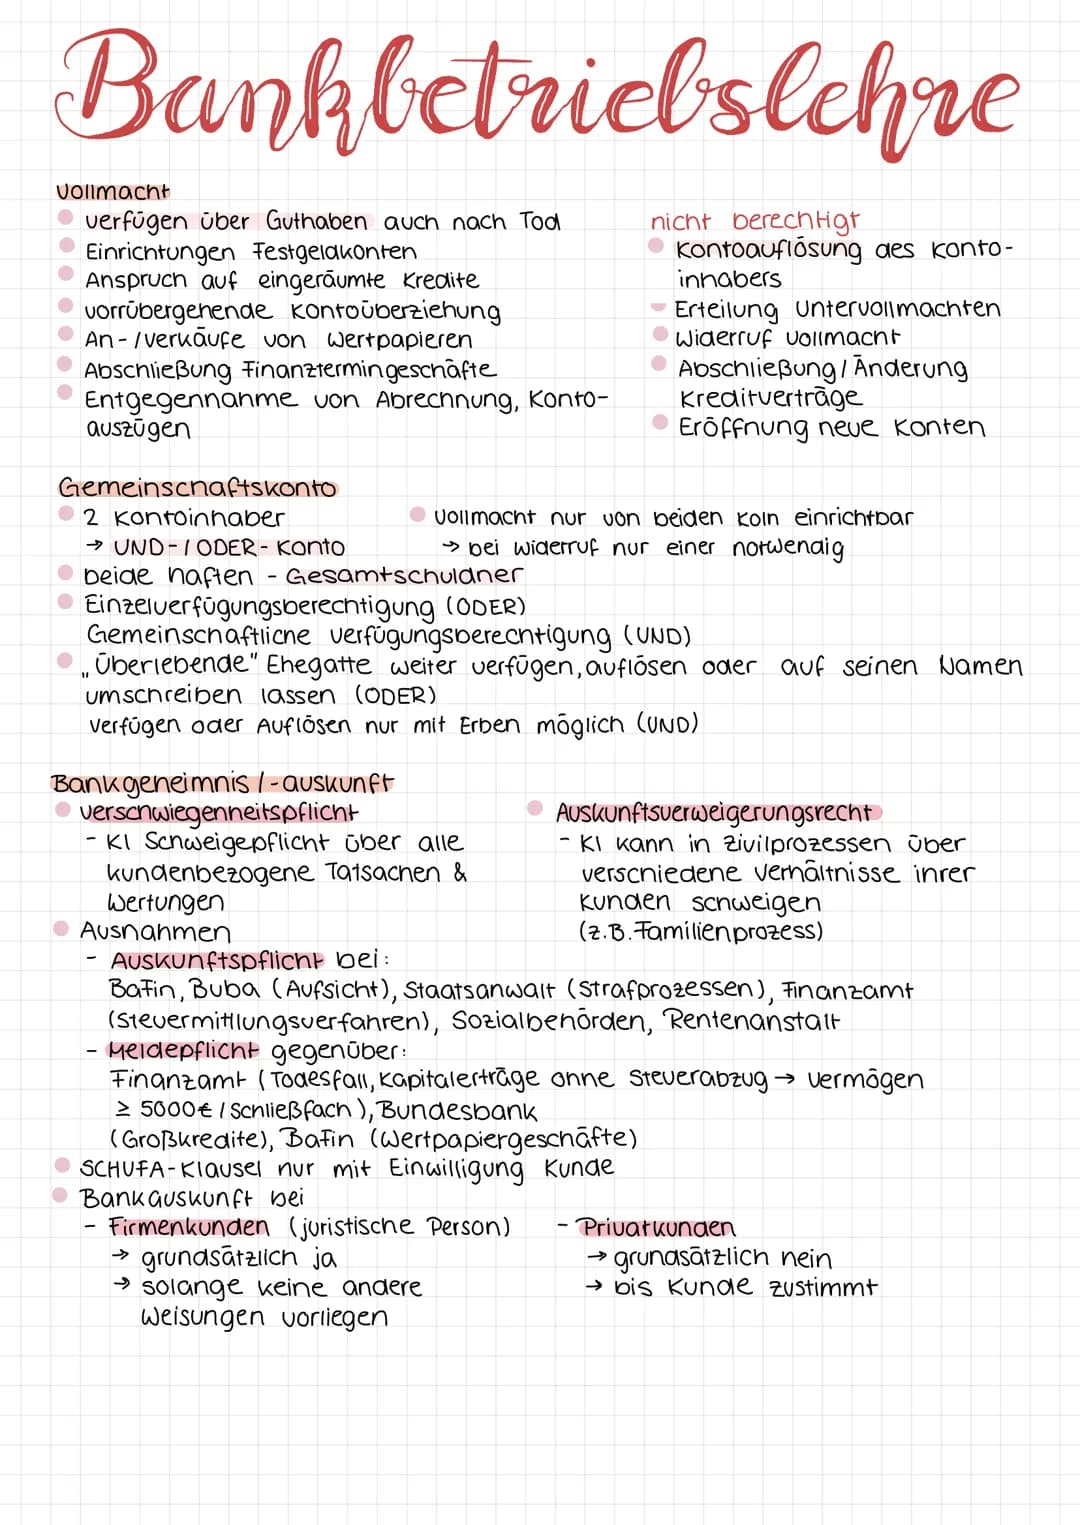 Bankbetriebslehre
Vollmacht
verfügen über Guthaben auch nach Tod
Einrichtungen Festgeldkonten
Anspruch auf eingeräumte Kredite
vorrübergehende Kontoüberziehung
An-/verkäufe von Wertpapieren
Abschließung Finanztermingeschäfte
Entgegennahme von Abrechnung, Konto-
auszügen
nicht berechtigt
Kontoauflösung des Konto-
inhabers
Erteilung Untervollmachten
Widerruf Vollmacht
Abschließung/Änderung
Kreditverträge
Eröffnung neue Konten
Gemeinschaftskonto
2 Kontoinhaber
→ UND-/ODER-Konto
Vollmacht nur von beiden KoIn einrichtbar
→ bei Widerruf nur einer notwendig
beide haften - Gesamtschuldner
Einzelverfügungsberechtigung (ODER)
Gemeinschaftliche Verfügungsberechtigung (UND)
„Überlebende" Ehegatte weiter verfügen, auflösen oder auf seinen Namen
umschreiben lassen (ODER)
verfügen oder Auflösen nur mit Erben möglich (UND)
Bankgeheimnis/-auskunft
Verschwiegenheitspflicht
- KI Schweigepflicht über alle
kundenbezogene Tatsachen &
Wertungen
Auskunftsverweigerungsrecht
- KI kann in Zivilprozessen über
verschiedene Verhältnisse ihrer
Kunden schweigen
(z.B. Familienprozess)
Ausnahmen
- Auskunftspflicht bei:
BaFin, Buba (Aufsicht), Staatsanwalt (Strafprozessen), Finanzamt
(Steuermittlungsverfahren), Sozialbehörden, Rentenanstalt
- Meldepflicht gegenüber:
Finanzamt (Todesfall, Kapitalerträge ohne Steuerabzug → Vermögen
≥ 5000€ / Schließfach), Bundesbank
(Großkredite), BaFin (Wertpapiergeschäfte)
SCHUFA-Klausel nur mit Einwilligung Kunde
Bankauskunft bei
- Firmenkunden (juristische Person)
→ grundsätzlich ja
→ solange keine andere
Weisungen vorliegen
- Privatkunden
→ grundsätzlich nein
→ bis Kunde zustimmt